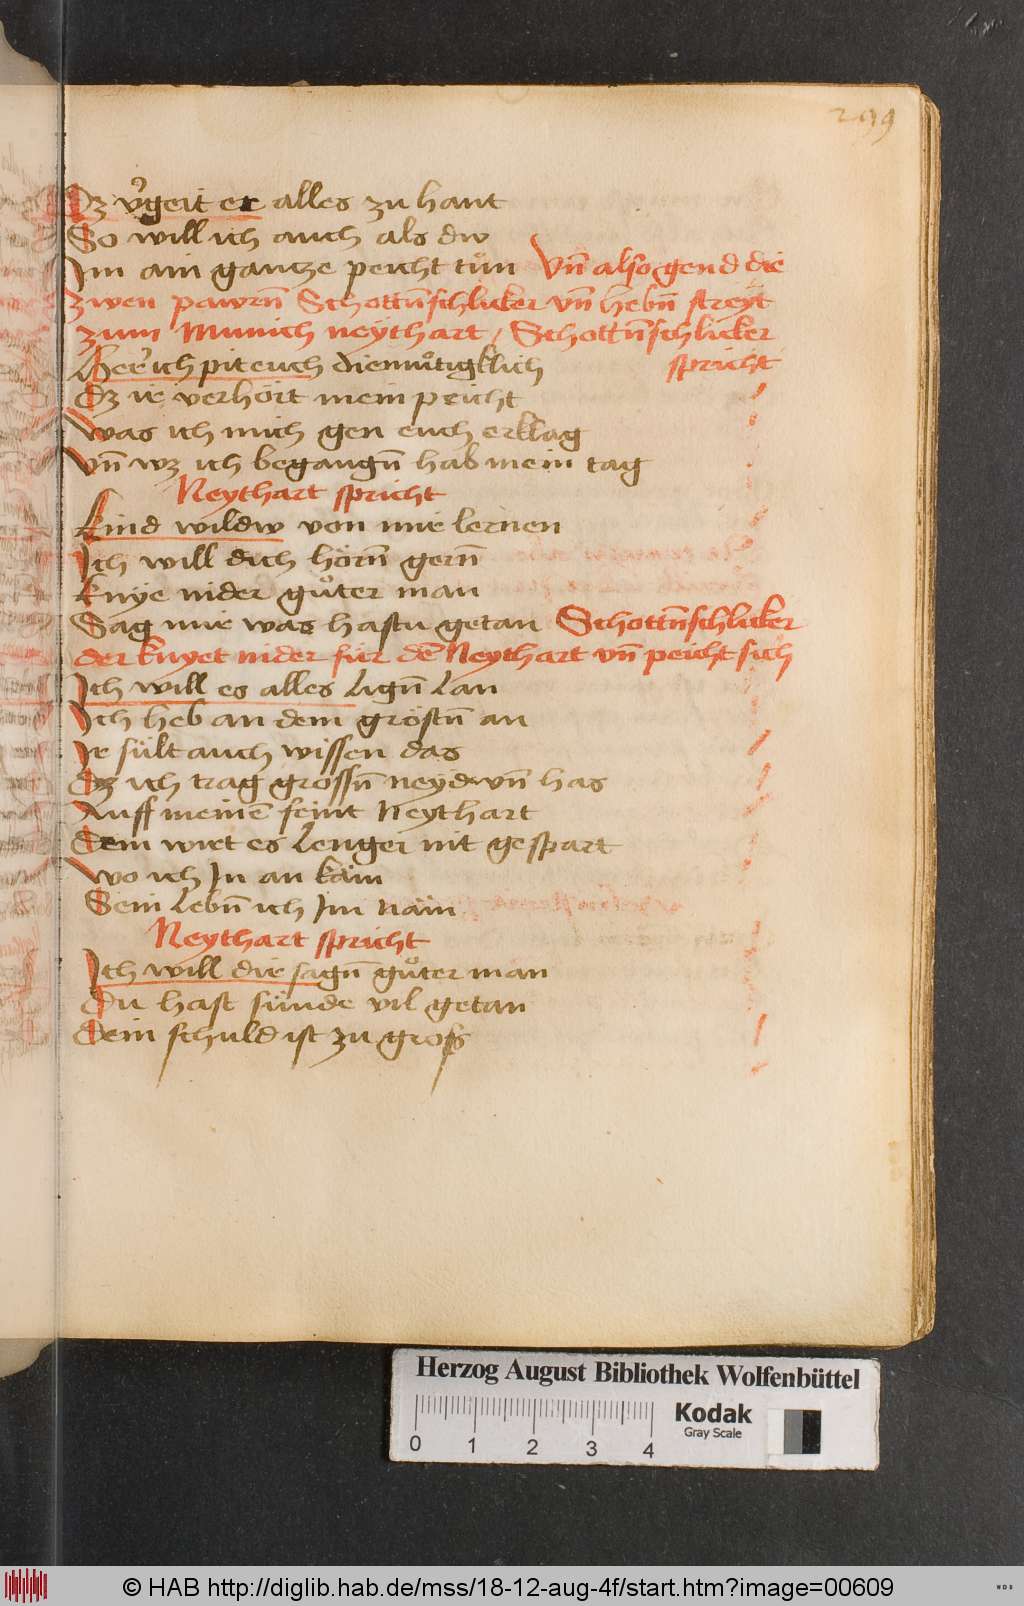 299
Dz v̉geit er alles zu hant
So will ich auch als dw
Im ain gantze peicht tůn Vn̄ also gend die
zwen pawrn̄ Schottn̄schlicker vn̄ hebn̄ streyt
zum Munich neythart / Schottn̄schlicker
Her̉ ich pit euch diemůtigklich spricht
Dz ir verhört mein peicht
Was ich mich gen euch erklag
Vn̄ wz ich begangn̄ hab mein tag
Neythart spricht
Kind wildw von mir lernen
Ich will dich hörn̄ gern̄
Knye nider gůter man
Sag mir was hastu getan Schottn̄schlicker
der knyet nider für dē Neythart vn̄ peicht sich
Ich will es alles lign̄ lan
Ich heb an dem gröstn̄ an
Ir sült auch wissen das
Dz ich trag grossn̄ neyd vn̄ has
Auff meinē feint Neythart
Dem wirt es lenger nit gespart
Wo ich In an käm
Sein lebn̄ ich Im näm
Neythart spricht
Ich will dir sagn̄ gůter man
Du hast sünde vil getan
Dein schuld ist zu groß
Herzog August Bibliothek Wolfenbüttel
Kodak
Gray Scale
0 1 2 3 4
© HAB http://diglib.hab.de/mss/18-12-aug-4f/start.htm?image=00609